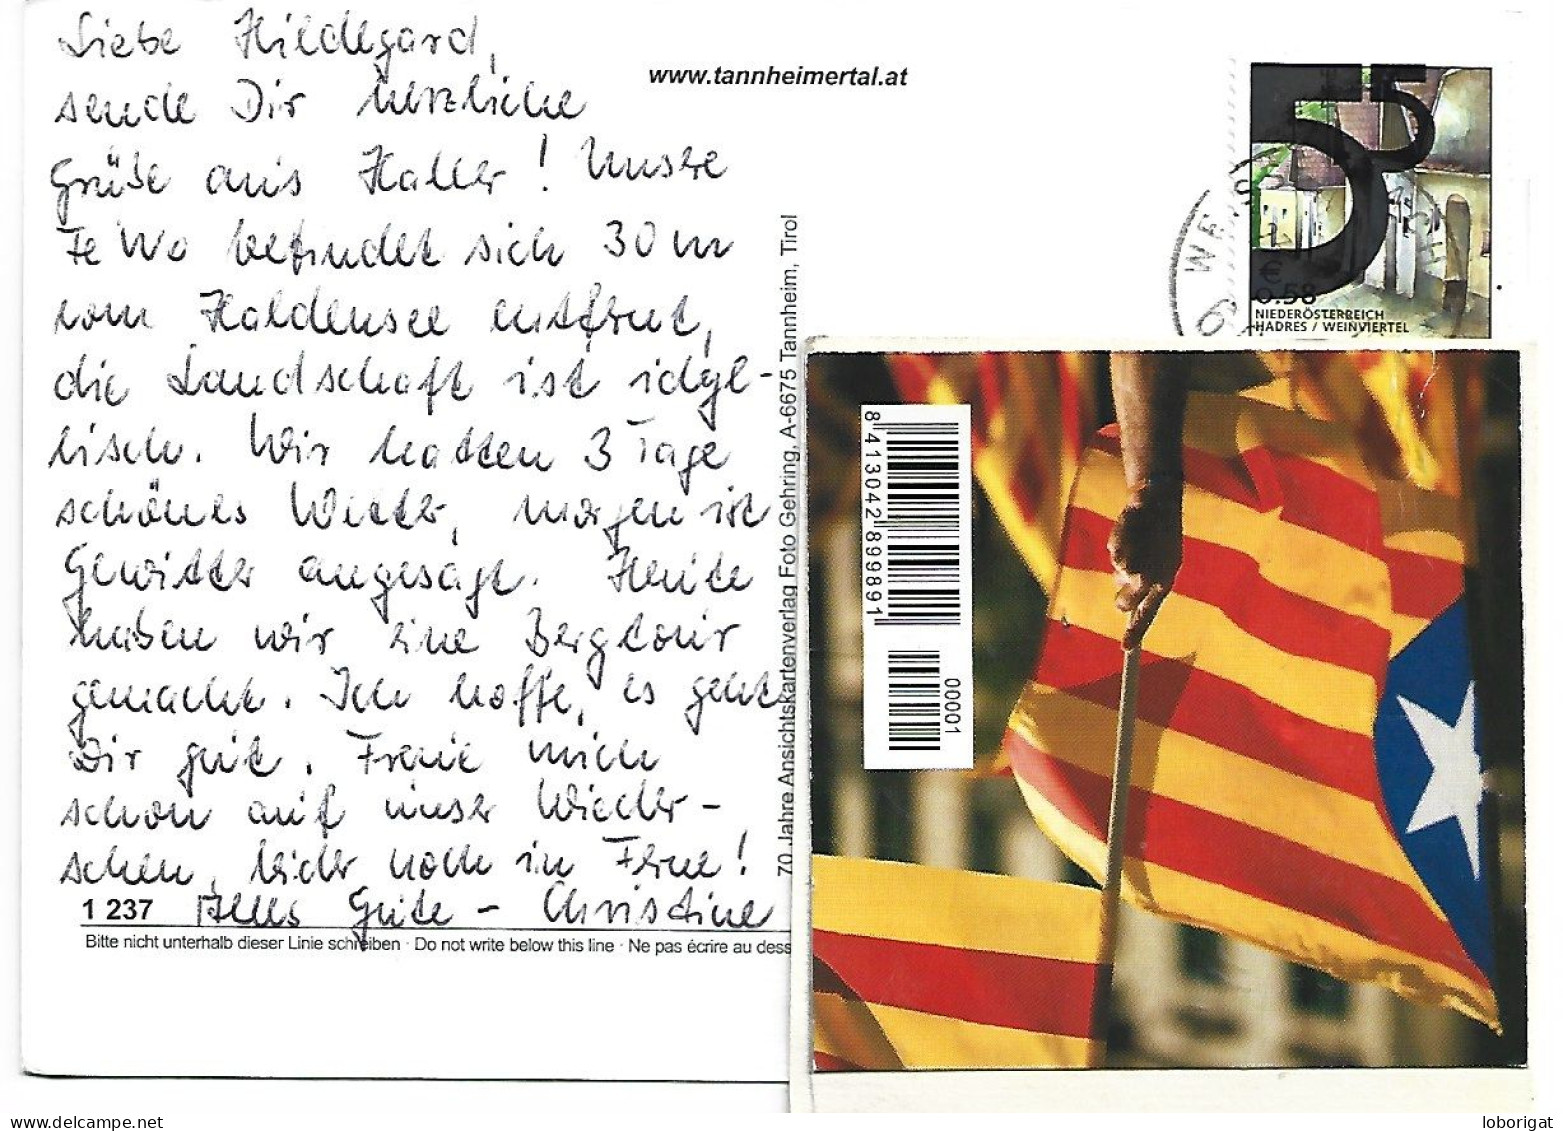 Liebe Hildegard,
sende Dir herzliche
Grüße aus Haller! Unsere
FeWo befindet sich 30 m
vom Haldensee entfernt,
die Landschaft ist idyl-
lisch. Wir hatten 3 Tage
schönes Wetter, morgen ist
Gewitter angesagt. Heute
haben wir eine Bergtour
gemacht. Ich hoffe, es geht
Dir gut. Freue mich
schon auf unser Wieder-
sehen, leider noch in Ferne!
Alles Gute - Christine
1 237
Bitte nicht unterhalb dieser Linie schreiben · Do not write below this line · Ne pas écrire au dess
www.tannheimertal.at
70 Jahre Ansichtskartenverlag Foto Gehring, A-6675 Tannheim, Tirol
55
€
0.58
NIEDERÖSTERREICH
HADRES / WEINVIERTEL
8 413042 899891
00001
loborigat